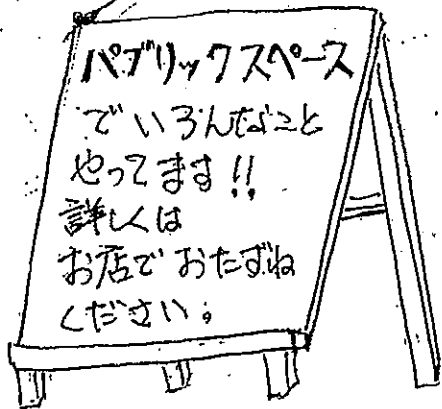 パブリックスペース
でいろんなこと
やってます!!
詳しくは
お店でおたずね
ください。